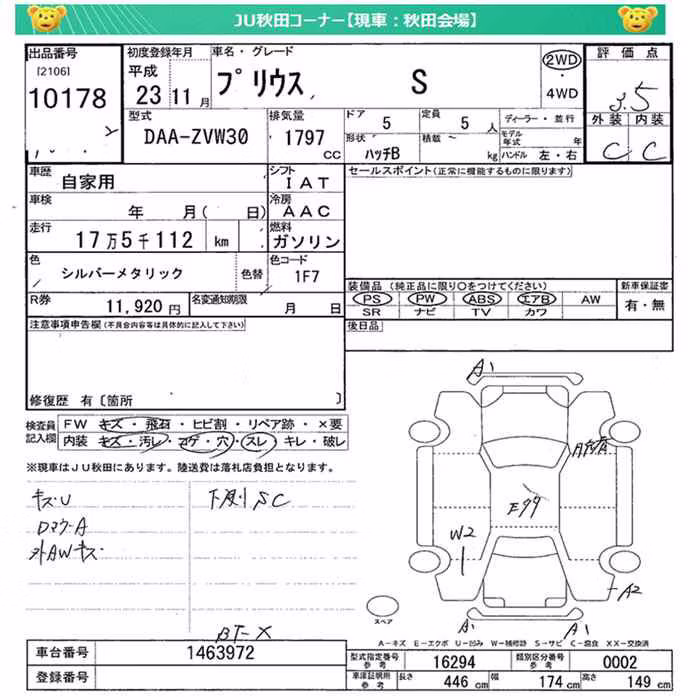 JU秋田コーナー【現車：秋田会場】
出品番号
[2106]
10178
初度登録年月
平成
23 11月
車名・グレード
プリウス S
2WD
・
4WD
評価点
3.5
外装 内装
C C
型式
DAA-ZVW30
排気量
1797
CC
ドア 5
定員 5 人
形状 ハッチB
積載 kg
ディーラー・並行
モデル年式 年
ハンドル 左・右
車歴
自家用
シフト
IAT
セールスポイント(正常に機能するものに限ります)
車検
年 月( 日)
冷房
AAC
走行
17万5千112 km
燃料
ガソリン
色
シルバーメタリック
色替
色コード
1F7
装備品 (純正品に限り○をつけてください)
PS PW ABS エアB AW
SR ナビ TV カワ
新車保証書
有・無
R券
11,920円
名変通知期限
月 日
後日品
注意事項申告欄(不具合内容等は具体的に記入して下さい)
修復歴 有〔箇所 〕
検査員
記入欄
FW キズ・飛石・ヒビ割・リペア跡・×要
内装 キズ・汚レ・コゲ・穴・スレ・キレ・破レ
※現車はJU秋田にあります。陸送費は落札店負担となります。
キズ・U
下廻りSC
外AWキズ
A1
W2
A2
A1
A1
スペア
BT-X
A-キズ E-エクボ U-凹み W-補修跡 S-サビ C-腐食 XX-交換済
車台番号
1463972
登録番号
型式指定番号
参考
16294
類別区分番号
参考
0002
車庫証明用
参考
長さ 446 cm
幅 174 cm
高さ 149 cm